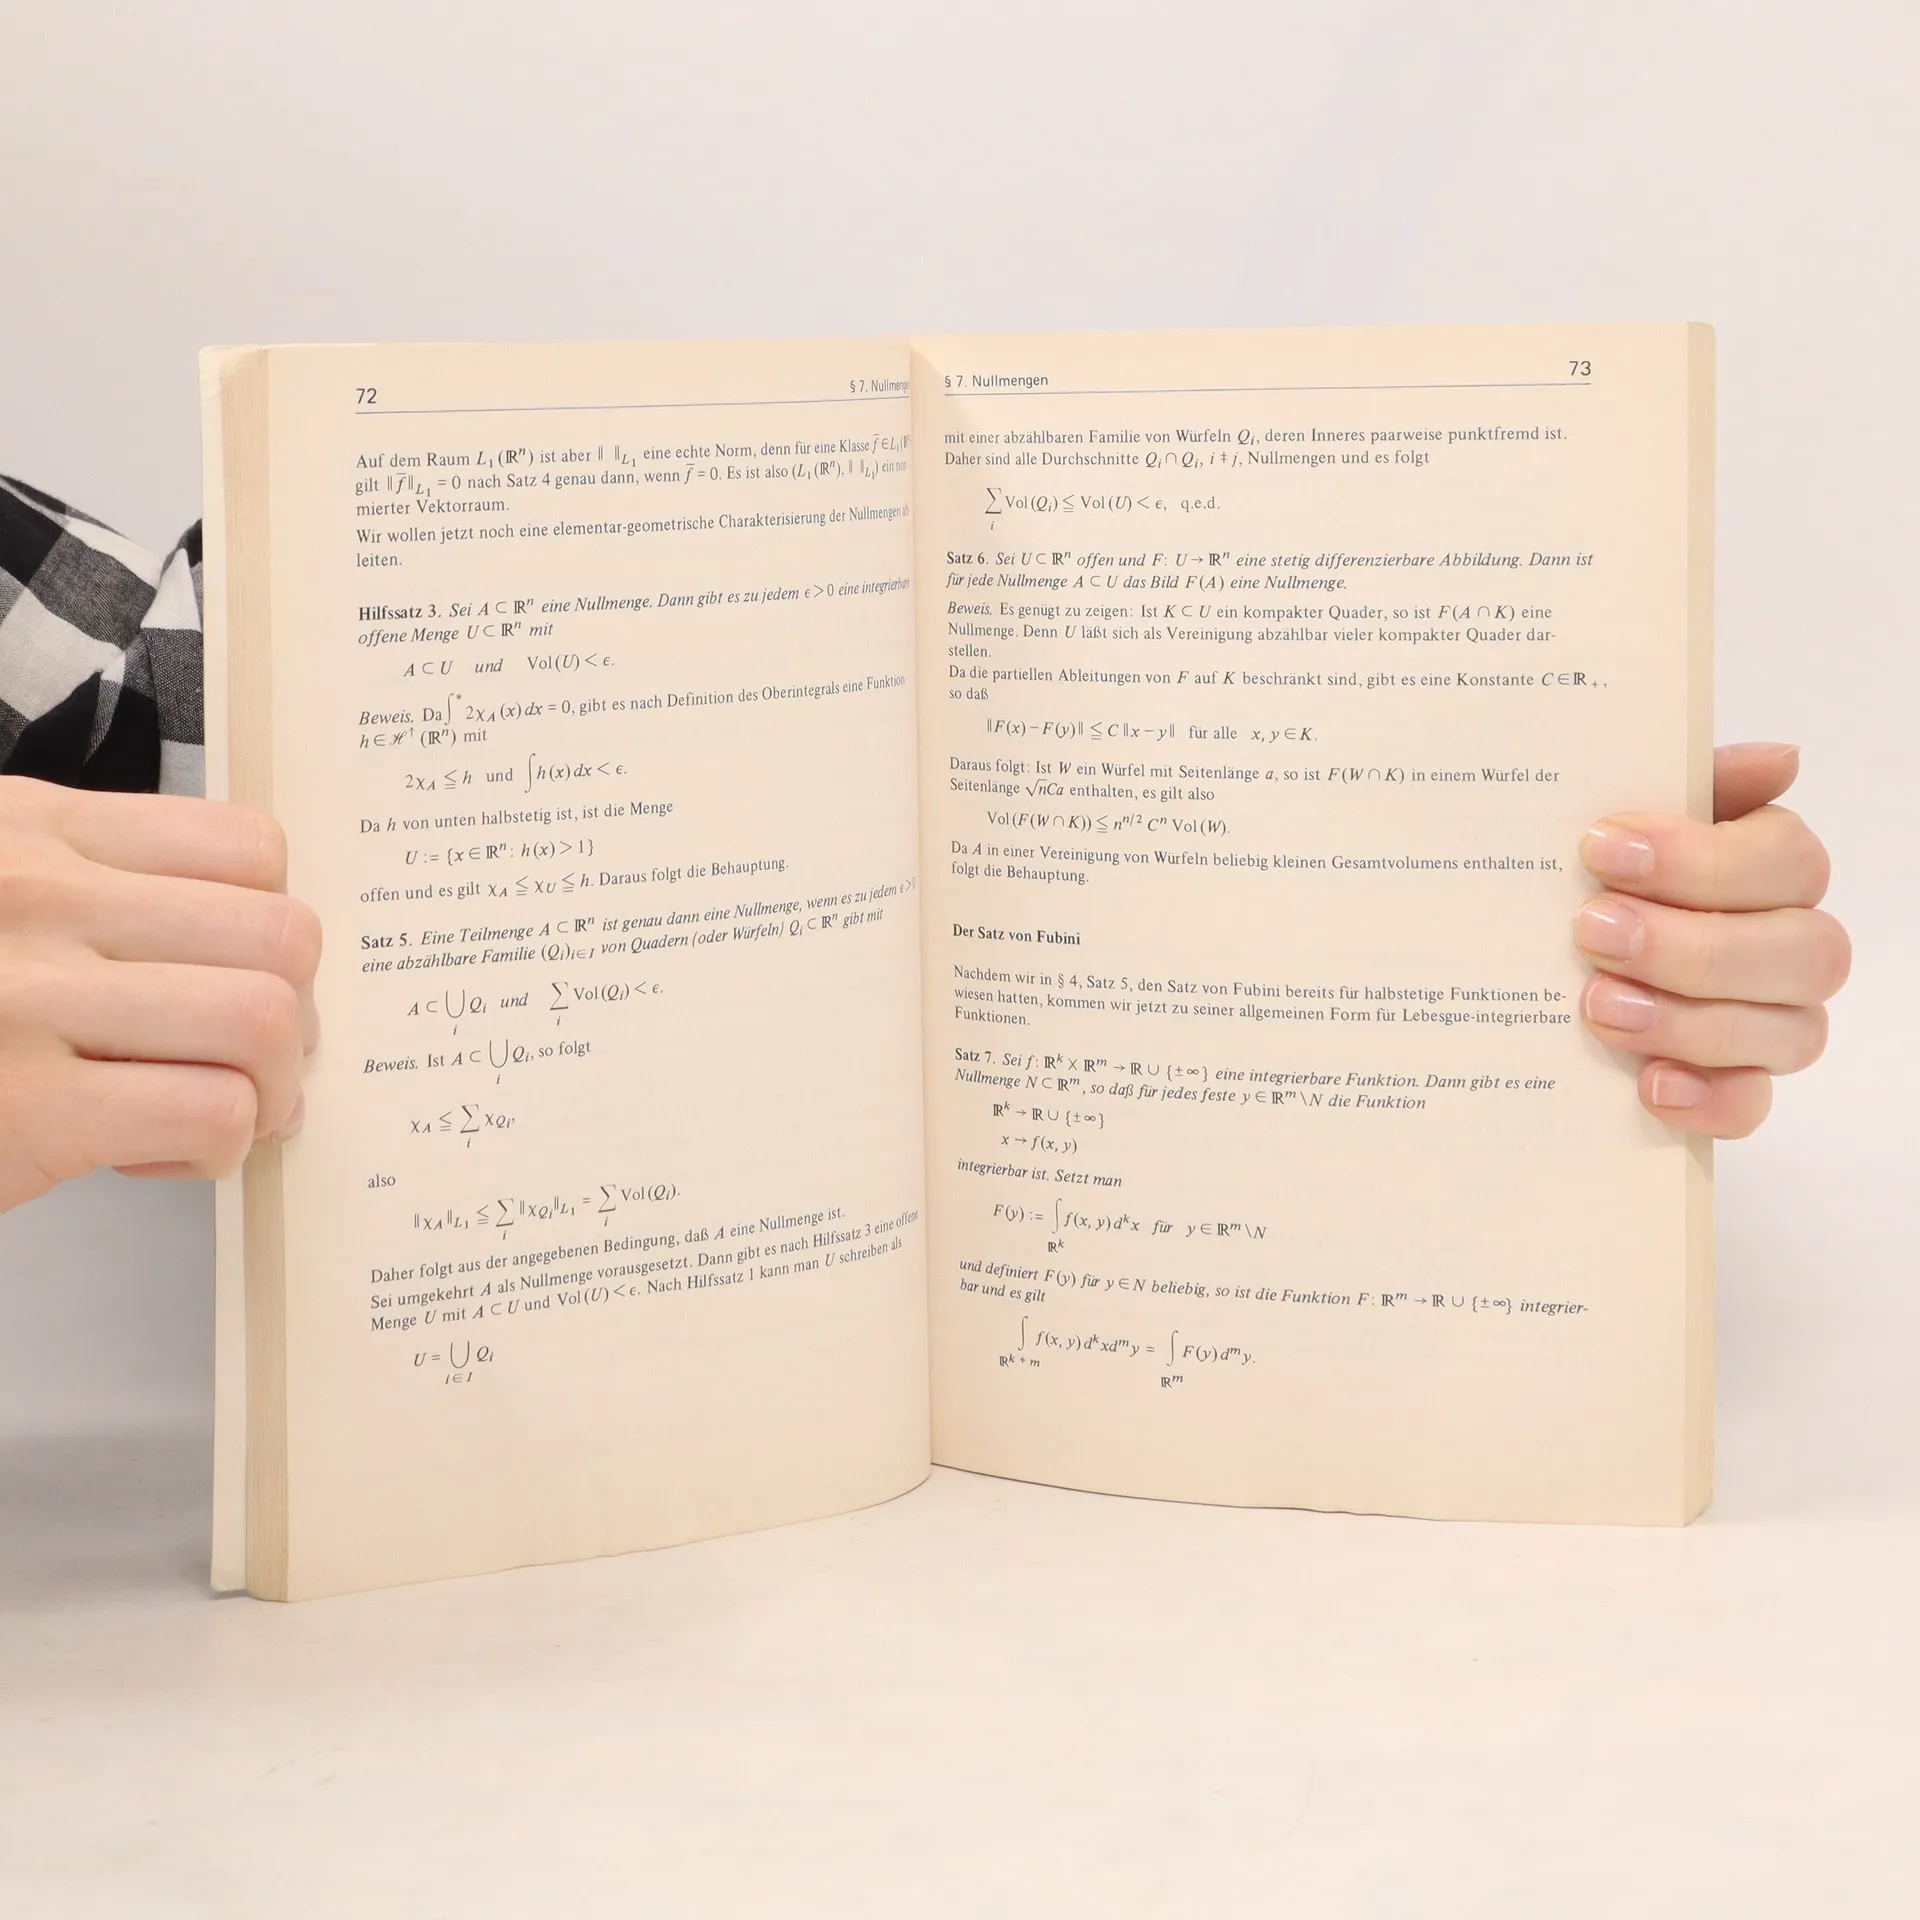 72
§ 7. Nullmengen
Auf dem Raum L₁(ℝⁿ) ist aber ‖ ‖_L₁ eine echte Norm, denn für eine Klasse f̄ ∈ L₁(ℝ
gilt ‖f̄‖_L₁ = 0 nach Satz 4 genau dann, wenn f̄ = 0. Es ist also (L₁(ℝⁿ), ‖ ‖_L₁) ein nor-
mierter Vektorraum.
Wir wollen jetzt noch eine elementar-geometrische Charakterisierung der Nullmengen ab-
leiten.
Hilfssatz 3. Sei A ⊂ ℝⁿ eine Nullmenge. Dann gibt es zu jedem ϵ > 0 eine integrierbare
offene Menge U ⊂ ℝⁿ mit
A ⊂ U und Vol(U) < ϵ.
Beweis. Da ∫* 2χ_A(x) dx = 0, gibt es nach Definition des Oberintegrals eine Funktion
h ∈ ℋ↑(ℝⁿ) mit
2χ_A ≦ h und ∫h(x) dx < ϵ.
Da h von unten halbstetig ist, ist die Menge
U := {x ∈ ℝⁿ: h(x) > 1}
offen und es gilt χ_A ≦ χ_U ≦ h. Daraus folgt die Behauptung.
Satz 5. Eine Teilmenge A ⊂ ℝⁿ ist genau dann eine Nullmenge, wenn es zu jedem ϵ > 0
eine abzählbare Familie (Q_i)_{i∈I} von Quadern (oder Würfeln) Q_i ⊂ ℝⁿ gibt mit
A ⊂ ⋃_i Q_i und ∑_i Vol(Q_i) < ϵ.
Beweis. Ist A ⊂ ⋃_i Q_i, so folgt
χ_A ≦ ∑_i χ_{Q_i},
also
‖χ_A‖_L₁ ≦ ∑_i ‖χ_{Q_i}‖_L₁ = ∑_i Vol(Q_i).
Daher folgt aus der angegebenen Bedingung, daß A eine Nullmenge ist.
Sei umgekehrt A als Nullmenge vorausgesetzt. Dann gibt es nach Hilfssatz 3 eine offene
Menge U mit A ⊂ U und Vol(U) < ϵ. Nach Hilfssatz 1 kann man U schreiben als
U = ⋃_{i∈I} Q_i
§ 7. Nullmengen
73
mit einer abzählbaren Familie von Würfeln Q_i, deren Inneres paarweise punktfremd ist.
Daher sind alle Durchschnitte Q_i ∩ Q_i, i ≠ j, Nullmengen und es folgt
∑_i Vol(Q_i) ≦ Vol(U) < ϵ, q.e.d.
Satz 6. Sei U ⊂ ℝⁿ offen und F: U → ℝⁿ eine stetig differenzierbare Abbildung. Dann ist
für jede Nullmenge A ⊂ U das Bild F(A) eine Nullmenge.
Beweis. Es genügt zu zeigen: Ist K ⊂ U ein kompakter Quader, so ist F(A ∩ K) eine
Nullmenge. Denn U läßt sich als Vereinigung abzählbar vieler kompakter Quader dar-
stellen.
Da die partiellen Ableitungen von F auf K beschränkt sind, gibt es eine Konstante C ∈ ℝ₊,
so daß
‖F(x) − F(y)‖ ≦ C‖x − y‖ für alle x, y ∈ K.
Daraus folgt: Ist W ein Würfel mit Seitenlänge a, so ist F(W ∩ K) in einem Würfel der
Seitenlänge √nCa enthalten, es gilt also
Vol(F(W ∩ K)) ≦ n^{n/2} Cⁿ Vol(W).
Da A in einer Vereinigung von Würfeln beliebig kleinen Gesamtvolumens enthalten ist,
folgt die Behauptung.
Der Satz von Fubini
Nachdem wir in § 4, Satz 5, den Satz von Fubini bereits für halbstetige Funktionen be-
wiesen hatten, kommen wir jetzt zu seiner allgemeinen Form für Lebesgue-integrierbare
Funktionen.
Satz 7. Sei f: ℝᵏ × ℝᵐ → ℝ ∪ {±∞} eine integrierbare Funktion. Dann gibt es eine
Nullmenge N ⊂ ℝᵐ, so daß für jedes feste y ∈ ℝᵐ\N die Funktion
ℝᵏ → ℝ ∪ {±∞}
x ↦ f(x, y)
integrierbar ist. Setzt man
F(y) := ∫_{ℝᵏ} f(x, y) dᵏx für y ∈ ℝᵐ\N
und definiert F(y) für y ∈ N beliebig, so ist die Funktion F: ℝᵐ → ℝ ∪ {±∞} integrier-
bar und es gilt
∫_{ℝ^{k+m}} f(x, y) dᵏx dᵐy = ∫_{ℝᵐ} F(y) dᵐy.